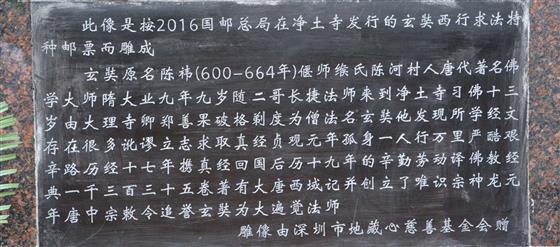 此像是按2016国邮总局在净土寺发行的玄奘西行求法特
种邮票而雕成
玄奘原名陈祎(600-664年)偃师缑氏陈河村人唐代著名佛
学大师隋大业九年九岁随二哥长捷法师来到净土寺习佛十三
岁由大理寺卿郑善果破格剃度为僧法名玄奘他发现所学经文
存在很多讹谬立志求取真经贞观元年孤身一人行万里严酷艰
辛路历经十七年携真经回国后历十九年的辛勤劳动译佛教经
典一千三百三十五卷著有大唐西域记并创立了唯识宗神龙元
年唐中宗敕令追誉玄奘为大遍觉法师
雕像由深圳市地藏心慈善基金会赠